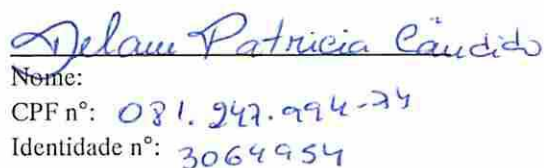 Delani Patricia Cândido
Nome:
CPF nº: 081.247.994-74
Identidade nº: 3064954